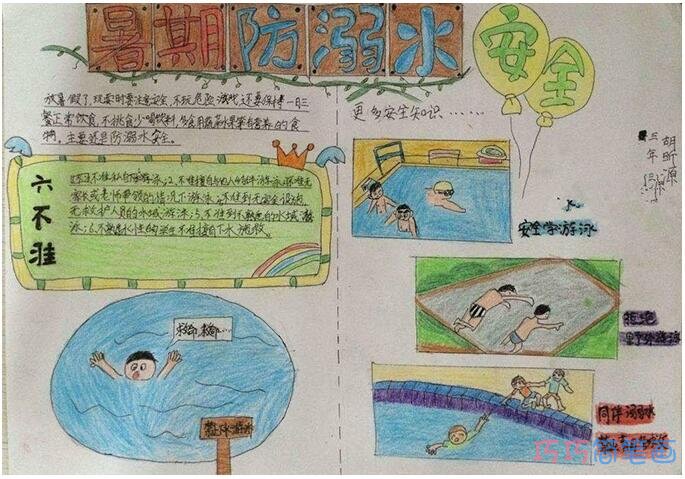 暑期防溺水
安全
放暑假了,玩耍时要注意安全,不玩危险游戏,还要保持一日三
餐正常饮食,不挑食少喝饮料,多食用蔬菜水果等营养的食
物,主要还是防溺水安全。
更多安全知识……
胡昕源
三年
六不准
不准私自下水游泳;2、不准擅自与他人结伴游泳;不准无
家长或老师带领的情况下游泳;不准到无安全设施、
无救护人员的水域游泳;5、不准到不熟悉的水域游
泳;6、不熟悉水性的学生不准擅自下水施救。
安全学游泳
水
救命,救命…
禁止游泳
拒绝
野外游泳
同伴溺水